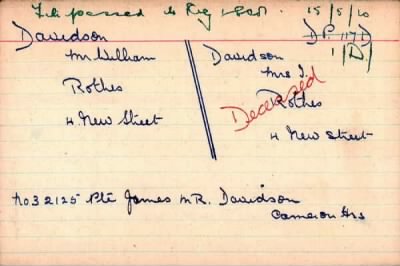 File passed to Reg
15/5/20
Davidson
Mr William
Rothes
4 New Street
Davidson
Mrs I.
Deceased
Rothes
4 New Street
No 3 2125 Pte James McR. Davidson
Cameron Hrs